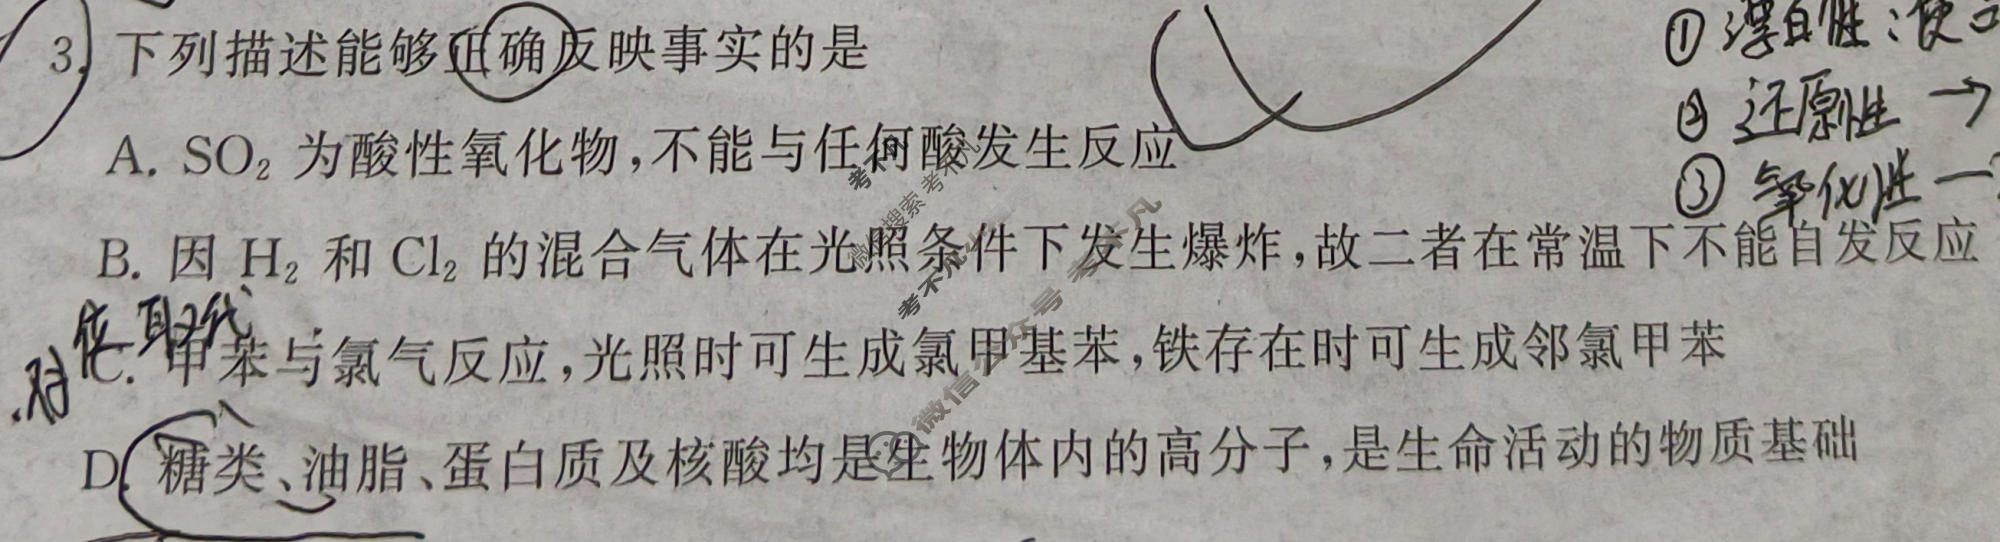 3. 下列描述能够正确反映事实的是
① 漂白性：使
② 还原性 →
③ 氧化性
A. SO₂ 为酸性氧化物，不能与任何酸发生反应
B. 因 H₂ 和 Cl₂ 的混合气体在光照条件下发生爆炸，故二者在常温下不能自发反应
对位取代
C. 甲苯与氯气反应，光照时可生成氯甲基苯，铁存在时可生成邻氯甲苯
D. 糖类、油脂、蛋白质及核酸均是生物体内的高分子，是生命活动的物质基础
考不凡
微信搜索 考不凡
考不凡
微信公众号 考不凡